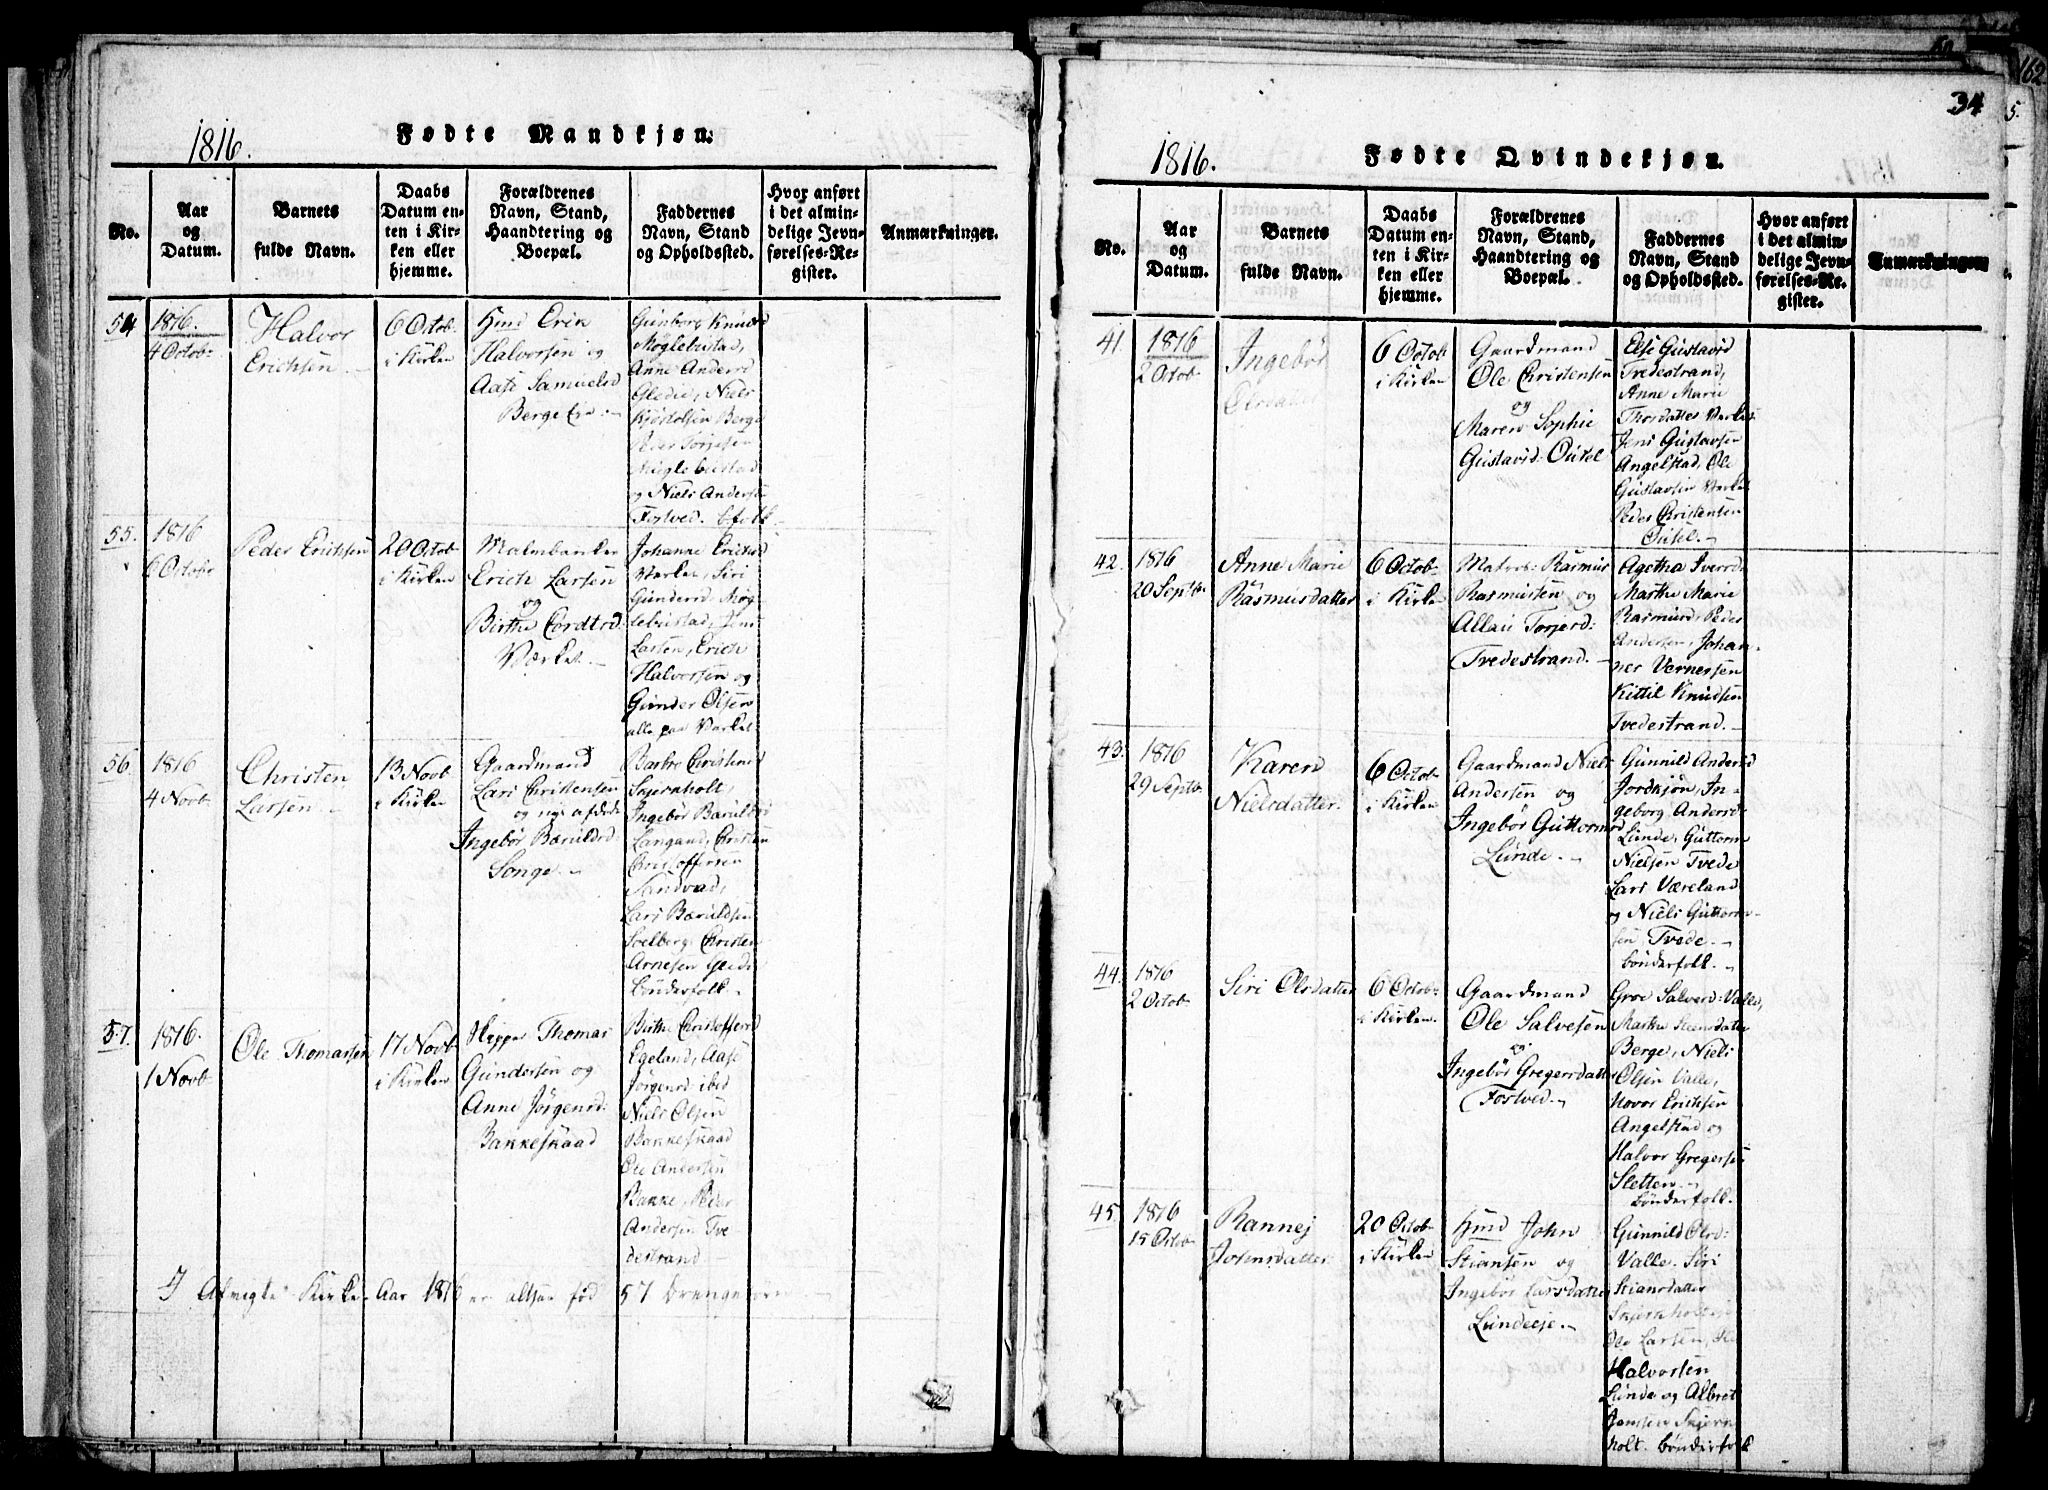 1816.
Fødte Mandkjøn:
No.
Aar
og
Datum.
Barnets
fulde Navn.
Daabs
Datum en-
ten i Kir-
ken eller
hjemme.
Forældrenes
Navn, Stand,
Haandtering og
Boepæl.
Faddernes
Navn, Stand
og Opholdssted.
Hvor anført
i det almin-
delige Jevn-
førelses-Re-
gister.
Anmærkninger.
54
1816.
4 Octob-
Halvor
Erichsen
6 Octob-
i Kirken
Hmd Erik
Halvorsen og
Aase Samuelsd
Berge Eie
Gunborg Knudsd
Moglebustad,
Anne Andersd
Gledie, Niels
Kjøstolsen Berge
Peder Torjesen
Moglebustad
og Niels Andersen
Fostved. bfolk
55.
1816
6 Octobr
Peder Erichsen
20 Octob-
i Kirken
Malmbanker
Erich Larsen
og
Birthe Cordtsd:
Værket.
Johanne Erichsd
Værket, Siri
Gundersd Mog-
lebustad, Jens
Larsen, Erich
Halvorsen og
Gunder Olsen
alle paa Værket
56.
1816
4 Novb-
Christen
Larsen.
13 Novb
i Kirken
Gaardmand
Lars Christensen
og
Ingebør Bærulds
Songe.
Barbro Christensd
Skjernholt,
Ingebør Bærulds
Langand, Christen
Christoffersen
Sandvad,
Lars Bæruldsen
Solberg, Christen
Arnesen
Bønderfolk.
57.
1816.
1 Novb-
Ole Thomassen
17 Novb
i Kirken
Thomas
Gundersen og
Anne Jørgensd:
Bakkeskaad
Birthe Christoffersd
Egeland, Aase
Jørgensd ibid
Niels Olsen
Bakkeskaad
Ole Andersen
Bakke, Peder
Andersen Tve-
destrand
I Afvigte Kirke-Aar 1816 er altsaa fød 57 Drengebørn

34
1816.
Fødte Qvindekjøn.
No.
Aar
og
Datum.
Barnets
fulde Navn.
Daabs
Datum en-
ten i Kir-
ken eller
hjemme.
Forældrenes
Navn, Stand,
Haandtering og
Boepæl.
Faddernes
Navn, Stand
og Opholdssted.
Hvor anført
i det almin-
delige Jevn-
førelses-Re-
gister.
Anmærkninger
41
1816
2 Octob
Ingebør
Olsdatter
6 Octob
i Kirken
Gaardmand
Ole Christensen
og
Maren Sophie
Gustavsd: Ousel
Else Gustavsd
Tvedestrand,
Anne Marie
Thorsdatter Værket
Jens Gustavsen
Angelstad, Ole
Gustavsen Værket
Peder Christensen
Ousel.
42.
1816
20 Septb-
Anne Marie
Rasmusdatter
6 Octob-
i Kirken
Matros: Rasmus
Rasmusen og
Allau Torjersd:
Tvedestrand.
Agetha Iversd:
Marthe Marie
Rasmusd, Peder
Andersen, Johan-
nes Vernersen
Kittil Knudsen
Tvedestrand.
43.
1816
29 Septb.
Karen
Nielsdatter.
6 Octob-
i Kirken
Gaardmand Niels
Andersen og
Ingebør Guttormsd
Lunde.
Gunnild Andersd
Jordkjøn, In-
geborg Andersd:
Lunde, Guttorm
Nielsen Tvede
Lars Væreland
og Niels Guttorm-
sen Tvede.
bønderfolk.
44.
1816
2 Octob-
Siri Olsdatter
6 Octob:
i Kirken.
Gaardmand
Ole Salvesen
og
Ingebør Gregersdatter
Fostved.
Groe Salvesd: Valle,
Marthe Steensdatter
Berge, Niels
Olsen Valle,
Hovor Erichsen
Angelstad og
Halvor Gregersen
Sletten.
bønderfolk.
45.
1816
15 Octob-
Rannej
Johnsdatter
20 Octob-
i Kirken
Hmd John
Stiansen og
Ingebør Larsdatter
Lundeeje.
Gunnild Olsd:
Valle. Siri
Stiansdatter
Skjernholteje
Ole Larsen,
Halvorsen
Lunde og Albret
Jonsen Skjern-
holt. bønderfolk